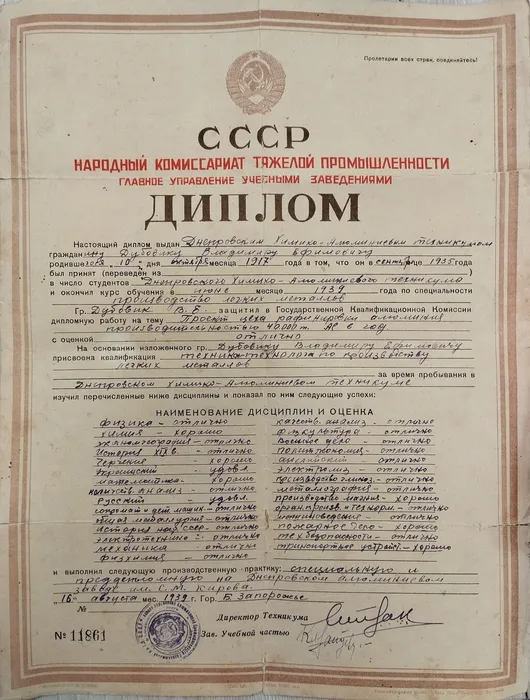 Пролетарии всех стран, соединяйтесь!
СССР
НАРОДНЫЙ КОМИССАРИАТ ТЯЖЕЛОЙ ПРОМЫШЛЕННОСТИ
ГЛАВНОЕ УПРАВЛЕНИЕ УЧЕБНЫМИ ЗАВЕДЕНИЯМИ
ДИПЛОМ
Настоящий диплом выдан Днепровским Химико-Алюминиевым техникумом
гражданину Дубовику Владимиру Ефимовичу
родившегося 10 дня октября месяца 1917 года в том, что он в сентябре 1935 года
был принят (переведен на
в число студентов Днепровского Химико-Алюминиевого техникума
и окончил курс обучения в июне месяце 1939 года по специальности
производство легких металлов
Гр. Дубовик В.Е. защитил в Государственной Квалификационной Комиссии
дипломную работу на тему Проект цеха рафинировки алюминия
производительностью 40.000 т. Ае в год
с оценкой отлично
На основании изложенного гр. Дубовику Владимиру Ефимовичу
присвоена квалификация техника-технолога по производству
легких металлов
за время пребывания в
Днепровском Химико-Алюминиевом техникуме
изучил перечисленные ниже дисциплины и показал по ним следующие успехи:
НАИМЕНОВАНИЕ ДИСЦИПЛИН И ОЦЕНКА
физика - отлично
химия - хорошо
эк. география - отлично
История XIX в. - отлично
Черчение - хорошо
Украинский - удовл.
математика - хорошо
количеств. анализ - отлично
Русский - удовл.
сопромат и дет. машин - отлично
общая металлургия - отлично
История нар. СССР - отлично
электротехника - отлично
механика - отлично
физхимия - отлично
качеств. анализ - отлично
физкультура - отлично
Военное дело - отлично
политэкономия - отлично
английский - отлично
электролиз - отлично
производство глиноз. - отлично
металлография - отлично
производство магния - хорошо
организ. произв. и техн. норм. - отлично
отлично
пожарное дело - хорошо
техбезопасности - отлично
транспортные устройст. - хорошо
и выполнил следующую производственную практику: специальную и
преддипломную на Днепровском алюминиевом
заводе им. С. М. Кирова
"16" августа мес. 1939 г. Гор. Б. Запорожье
№
Директор Техникума
Зав. Учебной частью
№ 11861